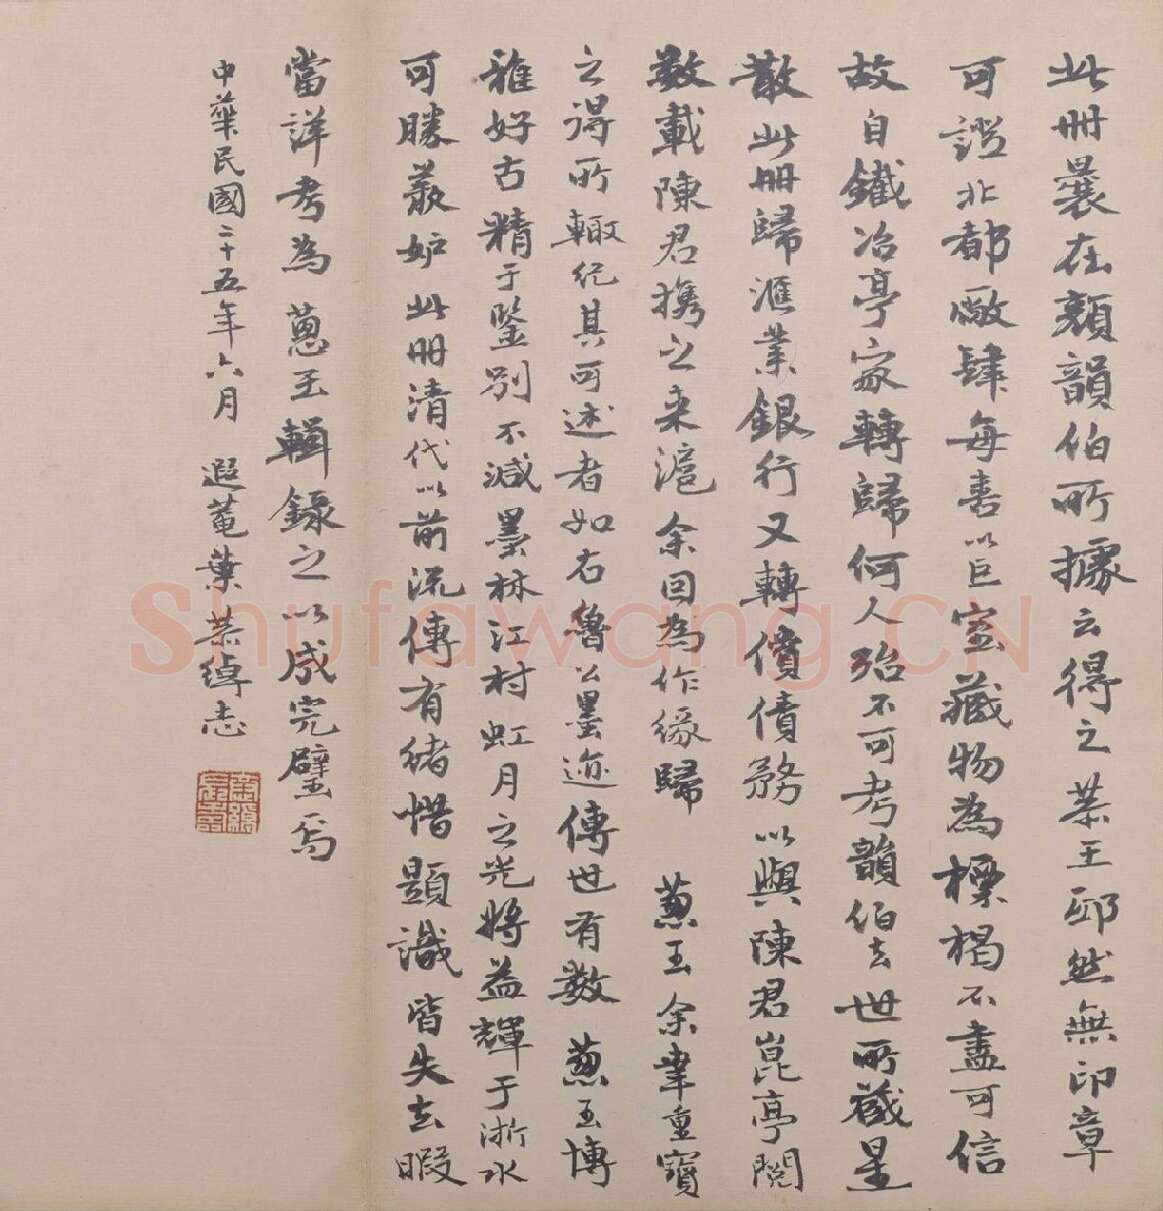 此冊曩在顏韻伯所據云得之恭王邸然無印章
可證北都廠肆每喜以巨室藏物為標榜不盡可信
故自鐵冶亭家轉歸何人殆不可考韻伯去世所藏星
散此冊歸滙業銀行又轉償債務以與陳君崑亭閱
數載陳君攜之来滬余因為作緣歸 蔥玉余幸重寶
之得所輙紀其可述者如右魯公墨迹傳世有數蔥玉博
雅好古精于鑒別不減墨林江村虹月之光將益輝于浙水
可勝羨妒此冊清代以前流傳有緒惜題識皆失去暇
當詳考為 蔥玉輯錄之以成完璧焉
中華民國二十五年六月 遐菴葉恭綽志
Shufawang.CN